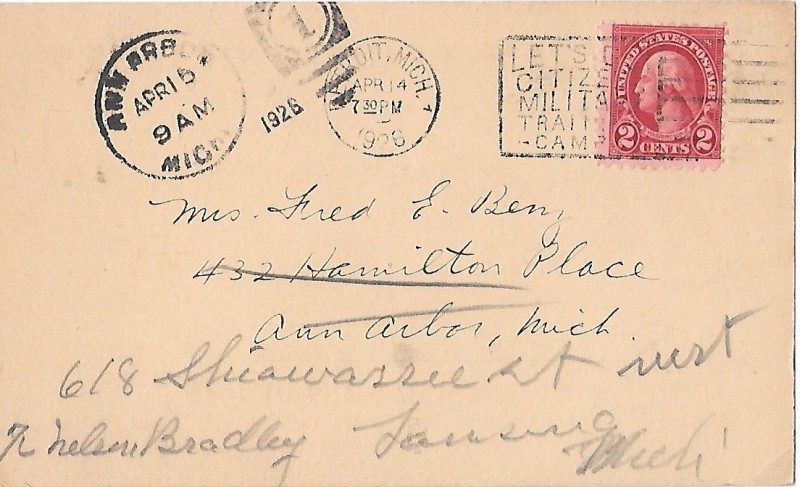 ANN ARBOR
APR 15
9 AM
1926
MICH.
1
DETROIT, MICH. 1
APR 14
7 30 PM
1926
LET'S
CITIZ
MILITA
TRAI
-CAM
UNITED STATES POSTAGE
2 CENTS 2
Mrs. Fred E. Benz
432 Hamilton Place
Ann Arbor, Mich.
618 Shiawassee st west
Nelson Bradley Lansing
Mich